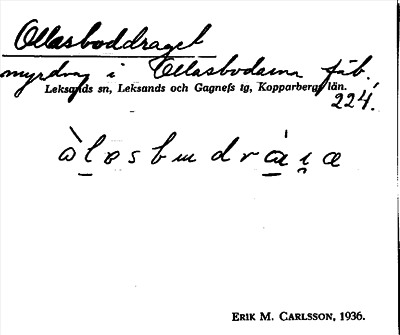 Ollasboddraget
myrdrag i Ollasbodarna fäb.,
Leksands sn, Leksands och Gagnefs tg, Kopparbergs län.
224.
Erik M. Carlsson, 1936.